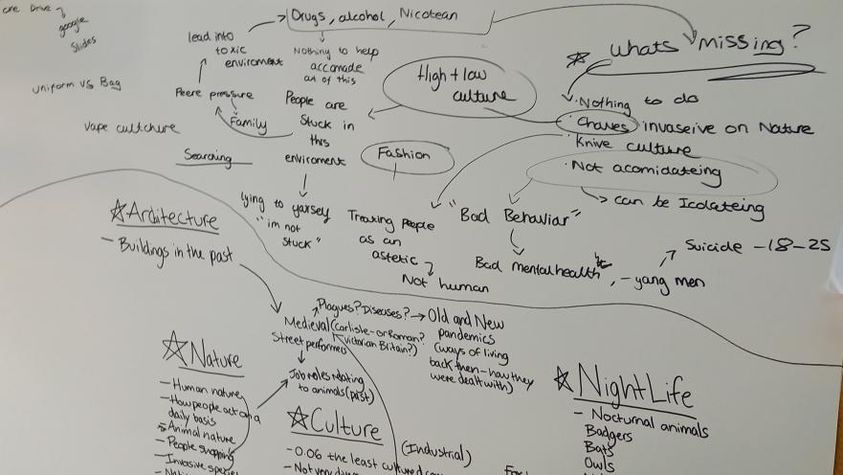 one Drive
google
Slides
uniform vs Bag
vape cultchure
lead into
toxic
enviroment
Peere pressure
Family
Searching
Drugs, alcohol, Nicotean
Nothing to help
accomadate
out of this
People are
Stuck in
this
enviroment
lying to yarself
"im not
stuck"
High + low
culture
Fashion
Treating people
as an
astetic
Not human
whats missing?
· Nothing to do
· Chaves invaseive on Nature
· Knive culture
· Not acomidateing
can be Icolateing
"Bad Behaviar"
Bad mental health
- yang men
Suicide - 18-25
Architecture
- Buildings in the past
Plagues? Diseases?
Medieval (Carlisle - or Roman?
Victorian Britain?)
Street performers
Old and New
pandemics
(ways of living
back then - how they
were dealt with)
Job roles relating
to animals (past)
Nature
- Human nature
- How people act on a
daily basis
- Animal nature
- People shopping
- Invasive species
Culture
- 0.06 the least cultured
(Industrial)
Night Life
- Nocturnal animals
Badgers
Bats
Owls